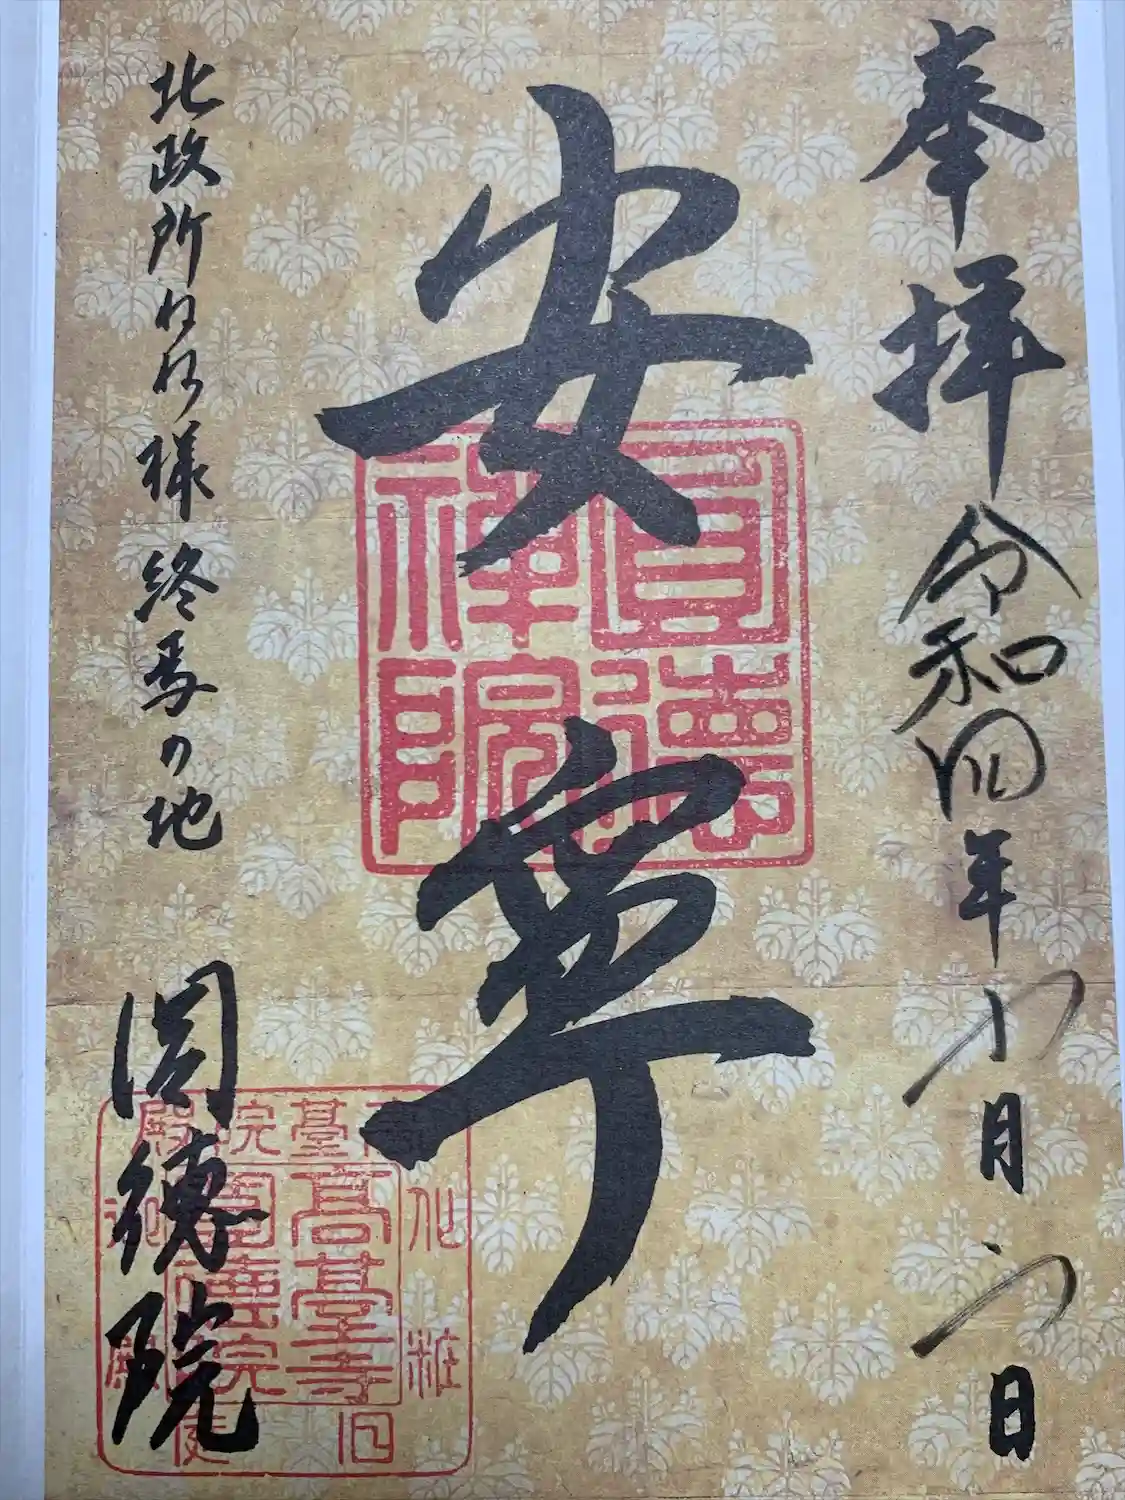 奉拝 令和四年 月 日
安寧
圓徳禅院
北政所ねね様 終焉の地
圓徳院
高臺寺
圓徳院